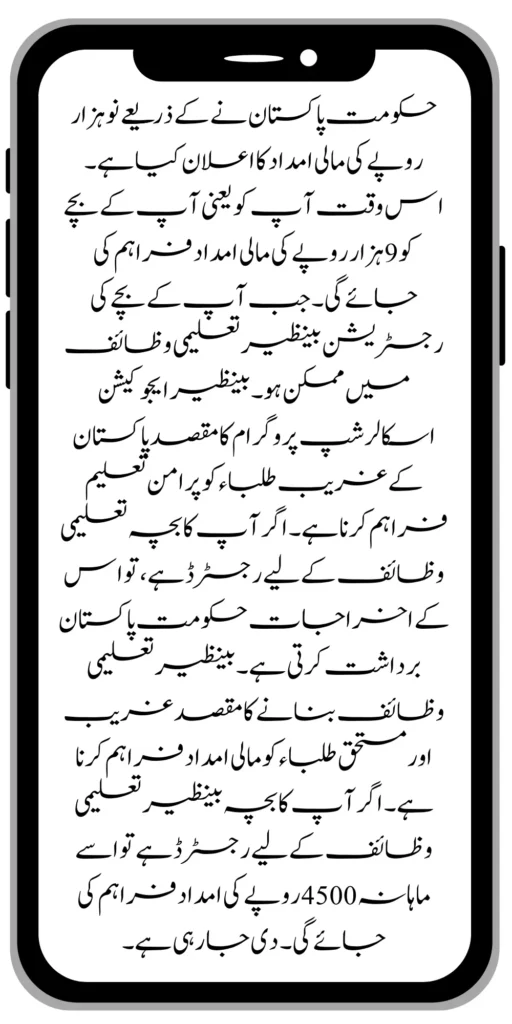 حکومت پاکستان نے کے ذریعے نو ہزار
روپے کی مالی امداد کا اعلان کیا ہے۔
اس وقت آپ کو یعنی آپ کے بچے
کو 9 ہزار روپے کی مالی امداد فراہم کی
جائے گی۔ جب آپ کے بچے کی
رجسٹریشن بینظیر تعلیمی وظائف
میں ممکن ہو۔ بینظیر ایجوکیشن
اسکالرشپ پروگرام کا مقصد پاکستان
کے غریب طلباء کو پرامن تعلیم
فراہم کرنا ہے۔ اگر آپ کا بچہ تعلیمی
وظائف کے لیے رجسٹرڈ ہے، تو اس
کے اخراجات حکومت پاکستان
برداشت کرتی ہے۔ بینظیر تعلیمی
وظائف بنانے کا مقصد غریب
اور مستحق طلباء کو مالی امداد فراہم کرنا
ہے۔ اگر آپ کا بچہ بینظیر تعلیمی
وظائف کے لیے رجسٹرڈ ہے تو اسے
ماہانہ 4500 روپے کی امداد فراہم کی
جائے گی۔ دی جا رہی ہے۔